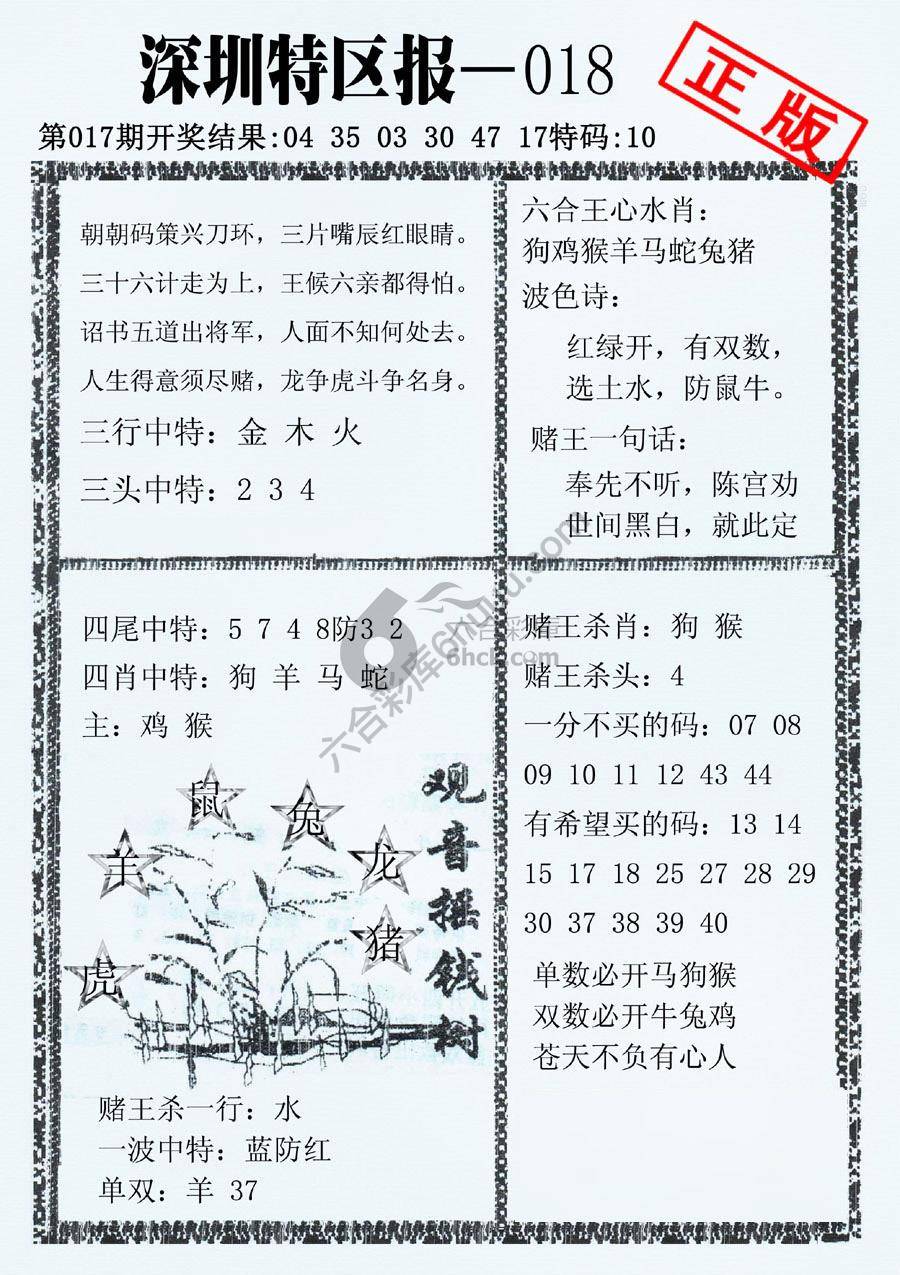 深圳特区报—018
正版
第017期开奖结果:04 35 03 30 47 17特码:10
朝朝码策兴刀环，三片嘴辰红眼睛。
三十六计走为上，王候六亲都得怕。
诏书五道出将军，人面不知何处去。
人生得意须尽赌，龙争虎斗争名身。
三行中特：金 木 火
三头中特：2 3 4
六合王心水肖：
狗鸡猴羊马蛇兔猪
波色诗：
红绿开，有双数，
选土水，防鼠牛。
赌王一句话：
奉先不听，陈宫劝
世间黑白，就此定
四尾中特：5 7 4 8防3 2
四肖中特：狗 羊 马 蛇
主：鸡 猴
鼠
兔
羊
龙
猪
虎
观音摇钱树
赌王杀一行：水
一波中特：蓝防红
单双：羊 37
赌王杀肖：狗 猴
赌王杀头：4
一分不买的码：07 08
09 10 11 12 43 44
有希望买的码：13 14
15 17 18 25 27 28 29
30 37 38 39 40
单数必开马狗猴
双数必开牛兔鸡
苍天不负有心人
六合彩库6hck.com
6hck.com